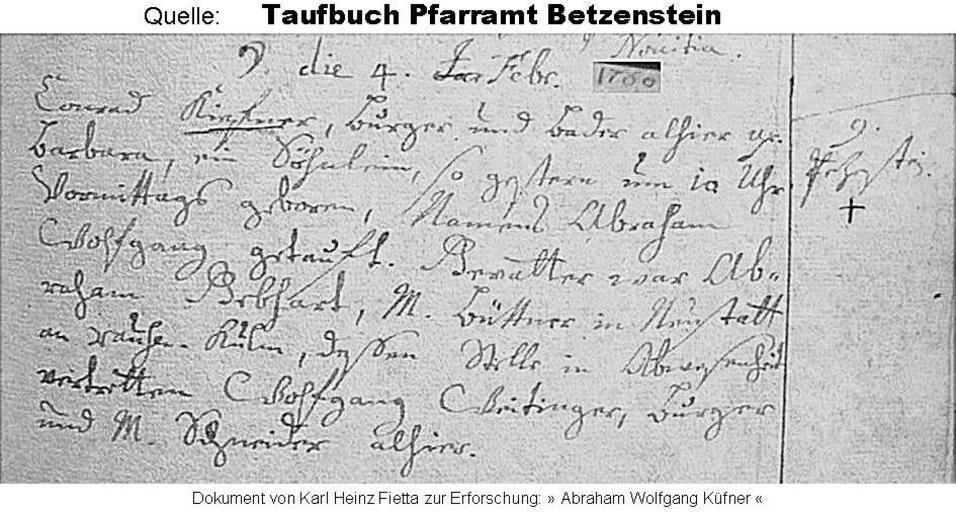 Quelle: Taufbuch Pfarramt Betzenstein
Novitia.
9. die 4. Febr. 1760
Conrad Küffner, burger und bader alhier ux.
barbara, ein Söhnlein, so gestern um 10 Uhr
Vormittags geboren, Namens Abraham
Wolfgang getauft. Gevatter war Ab-
raham Gebhart, M. büttner in Neustatt
am rauhen Kulm, dessen Stelle in Abwesenheit
vertretten Wolfgang Weitinger, burger
und M. Schneider alhier.
9.
†
Dokument von Karl Heinz Fietta zur Erforschung: » Abraham Wolfgang Küfner «